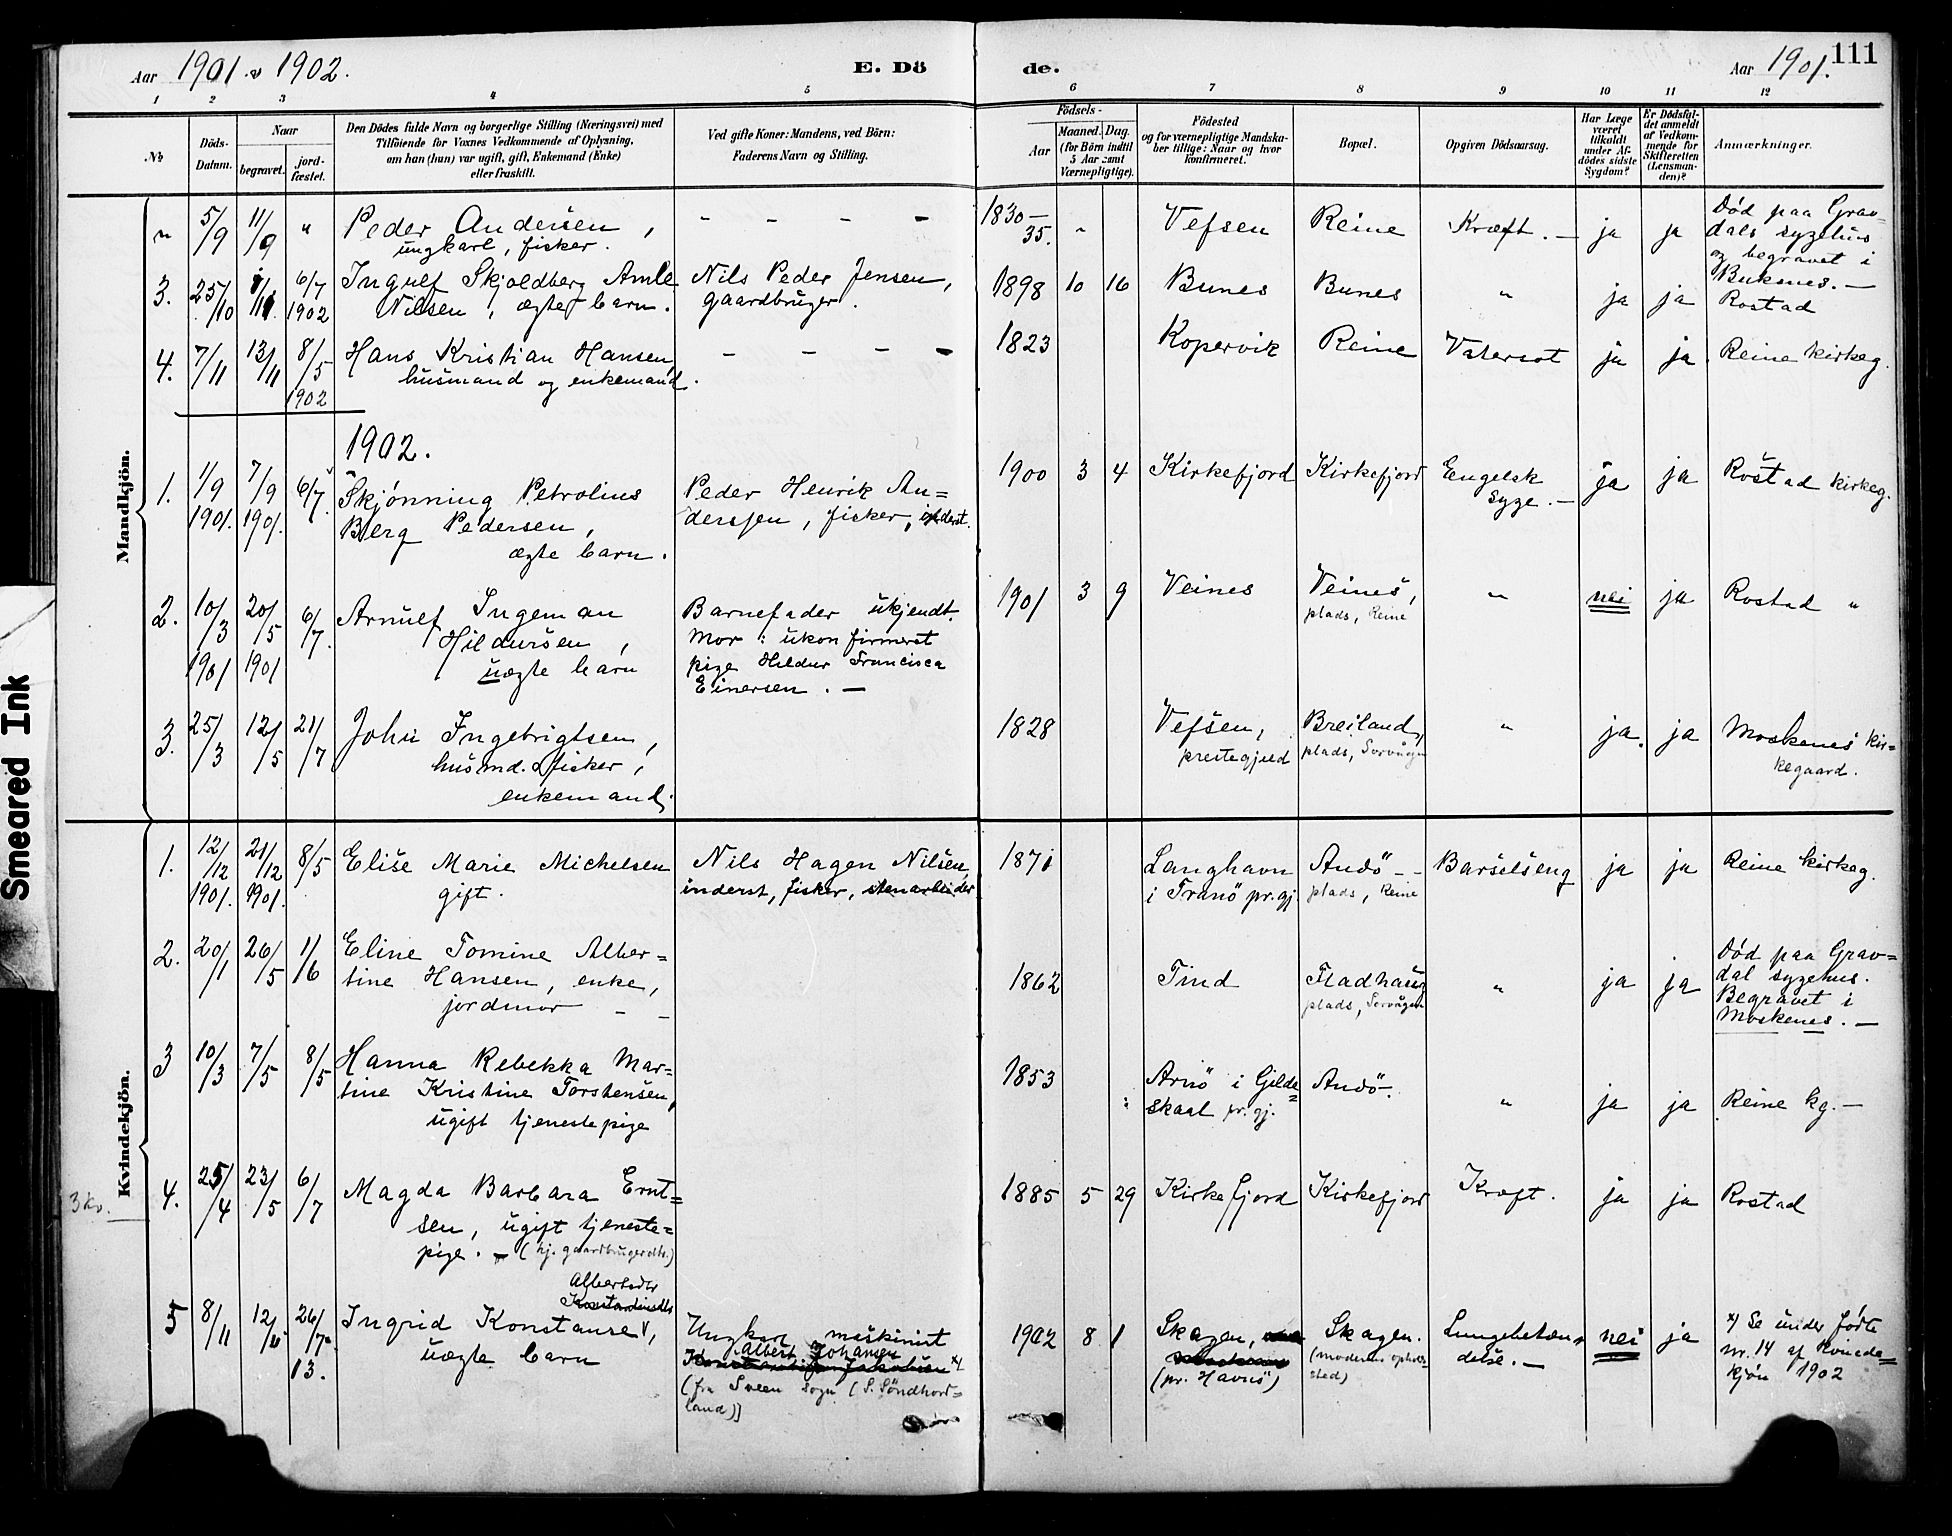 Aar 1901 & 1902.
E. Dö
de.
Aar 1901.
111
1 2 3 4 5 6 7 8 9 10 11 12
№
Döds-
Datum.
Naar
begravet.
jord-
fæstet.
Den Dödes fulde Navn og borgerlige Stilling (Næringsvei) med
Tilföiende for Voxnes Vedkommende af Oplysning,
om han (hun) var ugift, gift, Enkemand (Enke)
eller fraskilt.
Ved gifte Koner: Mandens, ved Börn:
Faderens Navn og Stilling.
Födsels-
Aar
Maaned.
Dag.
(for Börn indtil
5 Aar samt
Værnepligtige).
Födested
og for værnepligtige Mandska-
ber tillige: Naar og hvor
konfirmeret.
Bopæl.
Opgiven Dödsaarsag.
Har Læge
været
tilkaldt
under Af-
dödes sidste
Sygdom?
Er Dödsfal-
det anmeldt
af Vedkom-
mende for
Skifteretten
(Lensman-
den)?
Anmærkninger.
Mandkjön.
" 5/9 11/9 " Peder Andersen,
ungkarl, fisker.
- - - -
1830-
35. " Vefsen Reine Kræft. — ja ja
Död paa Grav-
dals sygehus
og begravet i
Buksnes. —
3. 25/10 /11 6/7
1902
Ingulf Skjoldberg Amle
Nilsen, ægte barn.
Nils Peder Jensen,
gaardbruger.
1898 10 16 Bunes Bunes " ja ja Rostad
4. 7/11 13/11 8/5
1902
Hans Kristian Hansen,
husmand og enkemand.
- - - -
1823 Kopervik Reine Vatersot ja ja Reine kirkeg.
1902.
1. 1/9
1901.
7/9
1901.
6/7.
Skjønning Petrolius
Berg Pedersen,
ægte barn.
Peder Henrik An-
derssen, fisker, inderst.
1900 3 4 Kirkefjord Kirkefjord Eengelsk
syge. — ja ja Rostad kirkeg.
2. 10/3
1901
20/5
1901
6/7.
Arnulf Ingeman
Hildursen,
uægte barn
Barnefader ukjendt.
Mor: ukonfirmeret
pige Hildur Francisca
Einersen. —
1901 3 9 Veines Veines,
plads, Reine
" nei ja Rostad "
3. 25/3 12/5 21/7 John Ingebrigtsen,
husmd. & fisker,
enkemand;
1828 Vefsen,
prestegjeld
Breiland,
plads, Sorvågen
" ja. ja Moskenes kir-
kegaard.
Kvindekjön.
1. 12/12
1901.
21/12
1901.
8/5 Elise Marie Michelsen
gift.
Nils Hagen Nilsen,
inderst, fisker, stenarbeider
1871 Langhavn
i Tranö pr.gj.
Andö - -
plads, Reine
Barselseng ja ja Reine kirkeg.
2. 20/1 26/5 1/6 Eline Tomine Alber=
tine Hansen, enke,
jordmor - -
1862 Tind Fladhaug
plads, Sorvågen
" ja ja
Död paa Grav=
dal sygehus.
Begravet i
Moskenes. —
3 10/3 7/5 8/5 Hanna Rebekka Mar=
tine Kristine Torstensen,
ugift tjenestepige
1853 Arnö i Gilde=
skaal pr. gj.
Andö-. " ja ja Reine kg. —
3 kv.
4. 25/4 23/5 6/7 Magda Barbara Ernt=
sen, ugift tjeneste=
pige. — (hj. gaardbrugerdtr.)
1885 5 29 Kirkefjord Kirkefjord Kræft. ja ja Rostad
Albertsdtr
Konstantinsdtr
5 8/11 12/ 26/7
13.
Ingrid Konstanse,
uægte barn
Ungkarl maskinist
Albert Johansen
Konstantin Jakobsen x)
(fra Sveen sogn (S. Söndhord=
land)]
1902 8 1 Skagen,
(pr. Havnö)
Skagen.
(moderens opholds
sted)
Lungebetæn=
delse. — nei ja
x) Se under födte
nr. 14 af Kvinde=
kjön 1902
Smeared Ink